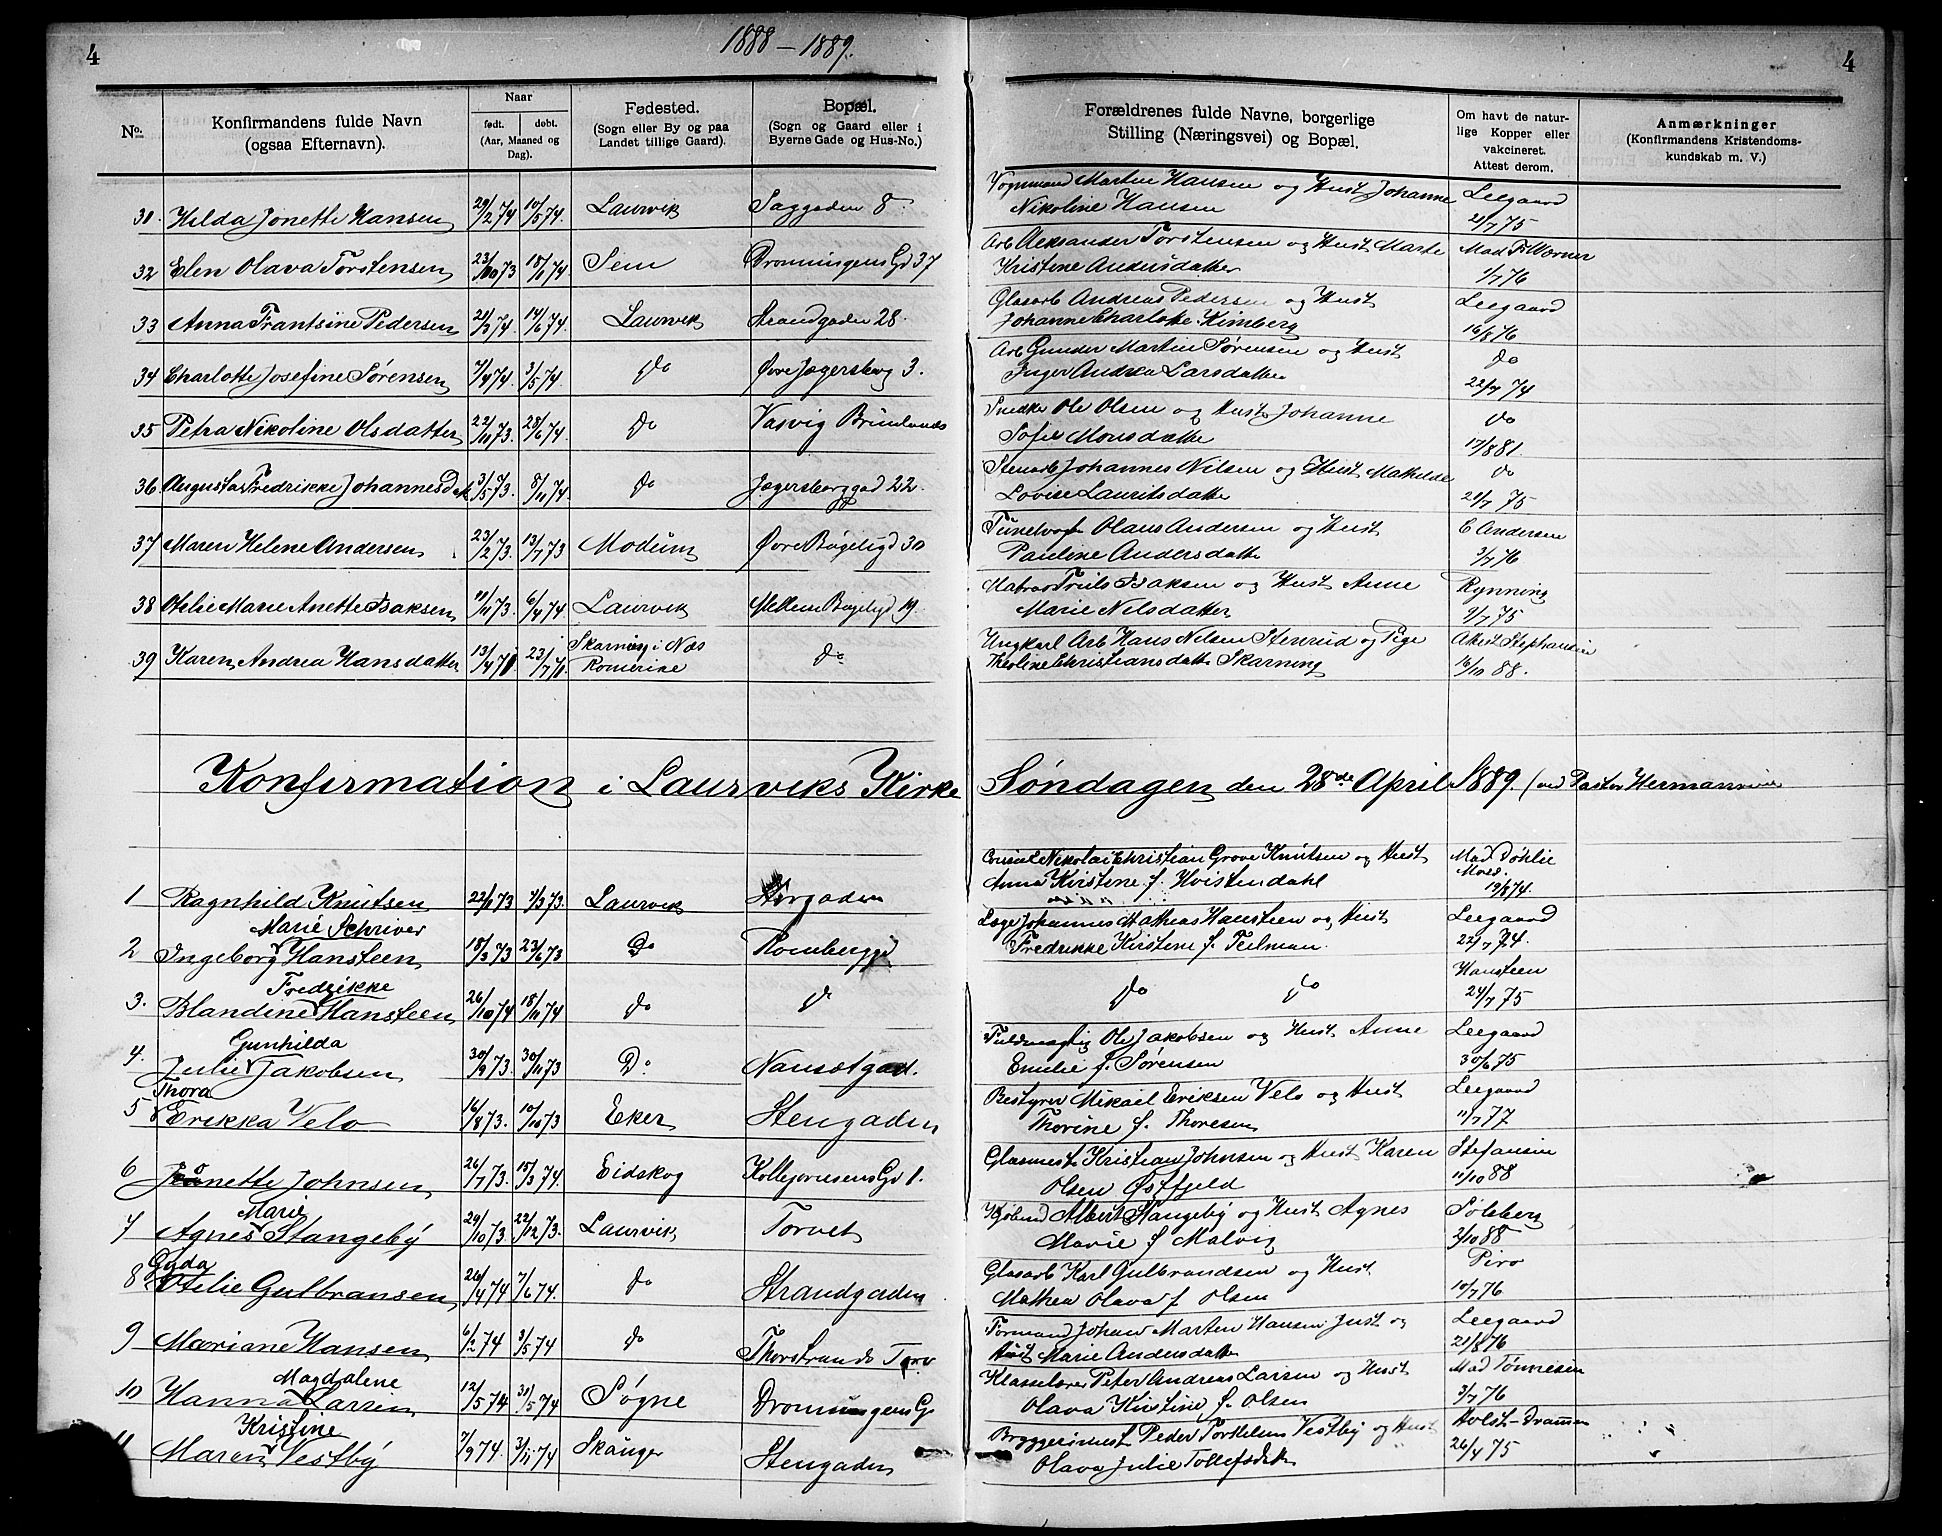 4
1888 – 1889.
4
No.
Konfirmandens fulde Navn
(ogsaa Efternavn).
Naar
født. døbt.
(Aar, Maaned og
Dag).
Fødested.
(Sogn eller By og paa
Landet tillige Gaard).
Bopæl.
(Sogn og Gaard eller i
Byerne Gade og Hus-No.)
Forældrenes fulde Navne, borgerlige
Stilling (Næringsvei) og Bopæl.
Om havt de natur-
lige Kopper eller
vakcineret.
Attest derom.
Anmærkninger
(Konfirmandens Kristendoms-
kundskab m. V.)
31. Hilda Jonette Hansen 29/2 74 10/5 74. Laurvik Saggaden 8
Vognmand Martin Hansen og Hust Johanne
Nikoline Hansen
Leegaard
21/7 75
32 Elen Olava Torstensen 23/10 73 18/1 74. Sem Dronningens Gd 37
Arb Aleksander Torstensen og Hust Marte
Kristine Andersdatter
Mad F Worner
1/7 76
33 Anna Frantsine Pedersen 21/3 74. 14/6 74. Laurvik Strandgaden 28.
Glasarb Andreas Pedersen og Hust
Johanne Charlotte Kimberg
Leegaard
16/8 76
34 Charlotte Josefine Sørensen 7/4 74. 3/5 74. do Øvre Jegersborg 3.
Arb Gunder Martin Sørensen og Hust
Inger Andrea Larsdatter
do
22/7 74
35 Petra Nikoline Olsdatter 22/11 73. 28/6 74. do Vasvig Brundlanes
Snedker Ole Olsen og Hust Johanne
Sofie Monsdatter
do
17/8 81
36 Augusta Fredrikke Johannesdat 3/5 73. 8/11 74. do Jegersborggad 22.
Stenarb Johannes Nilsen og Hust Mathilde
Lovise Lauritsdatter
do
21/7 75
37 Maren Helene Andersen 23/2 73. 13/7 73 Modum Øvre Bøgeligd 30
Tunelvogt Olaus Andersen og Hust
Pauline Andersdatter
C Andersen
3/7 76
38 Otilie Marie Anette Isaksen 11/11 73. 6/4 74. Laurvik Mellem Bøgeligd 19.
Matros Truls Isaksen og Hust Anne
Marie Nilsdatter
Rynning
9/7 75
39 Karen Andrea Hansdatter 13/4 71 23/7 71. Skarning i Næs
Romerike do
Ungkarl Arb Hans Nilsen Stenrud og Pige
Theoline Christiansdatter Skarning
Attest Stephansen
16/10 88.
Konfirmation i Laurviks Kirke Søndagen den 28de April 1889. (ved Pastor Hermansen
1 Ragnhild Knutsen 22/1 73 4/3 73. Laurvik Storgaden
Consul Nikolai Christian Grove Knutsen og Hust
Anna Kirstine f. Hvistendahl
Mad Døhlie
Moss.
19/8 74.
Marie Schriver
2 Ingeborg Hansteen 18/3 73 23/6 73 Do Romberggd
Læge Johannes Mathias Hansteen og Hust
Fredrikke Kirstine f. Teilman.
Leegaard
22/7 74.
Fredrikke
3. Blandine Hansteen 26/10 74 18/11 74 do d
do do
Hansteen
24/7 75
Gunhilda
4. Julie Jakobsen 30/9 73. 30/11 73 Do Nansetgad.
Fuldmægtig Ole Jakobsen og Hust Anne
Emilie f. Sørensen
Leegaard
30/6 75
Thora
5 Erikka Velo 16/8 73. 10/10 73 Eker Stengaden
Bestyrer Mikael Eriksen Velo og Hust
Thorine f. Thoresen
Leegaard
11/7 77
6 Jonette Johnsen 26/7 73. 15/3 74. Eidskog Kollejornsens Gd 1.
Glasmest Kristian Johnsen og Hust Karen
Olsen Østfjeld
Stefansen
11/10 88
Marie
7 Agnes Stangeby 29/10 73. 22/12 73. Laurvik Torvet
Kjøbmd Albert Stangeby og Hust Agnes
Marie f Malvig
Solberg
3/10 88
Gyda
8 Otilie Gulbransen 26/4 74 7/6 74. do Strandgaden
Glasarb Karl Gulbrandsen og Hust
Mathea Olava f. Olsen
Piro
10/7 76
9 Mariane Hansen 6/2 74 3/5 74 do Thorstrands Torv
Formand Johan Marten Hansen Just og
Hust Marie Andersdatter
Leegaard
21/8 76
Magdalene
10 Hanna Larsen 12/5 74 31/5 74 Søgne Dronningens G
Klasselærer Peter Andreas Larsen og Hust
Olava Kirstine f. Olsen
Mad Tønnesen
3/7 76
Kristine
11 Maren Vestby 7/9 74. 3/11 74 Skauger Stengaden
Bryggerimest Peder Torstensen Vestby og Hust
Olava Julie Tollefsdatter
Holst-Dramm
26/4 75